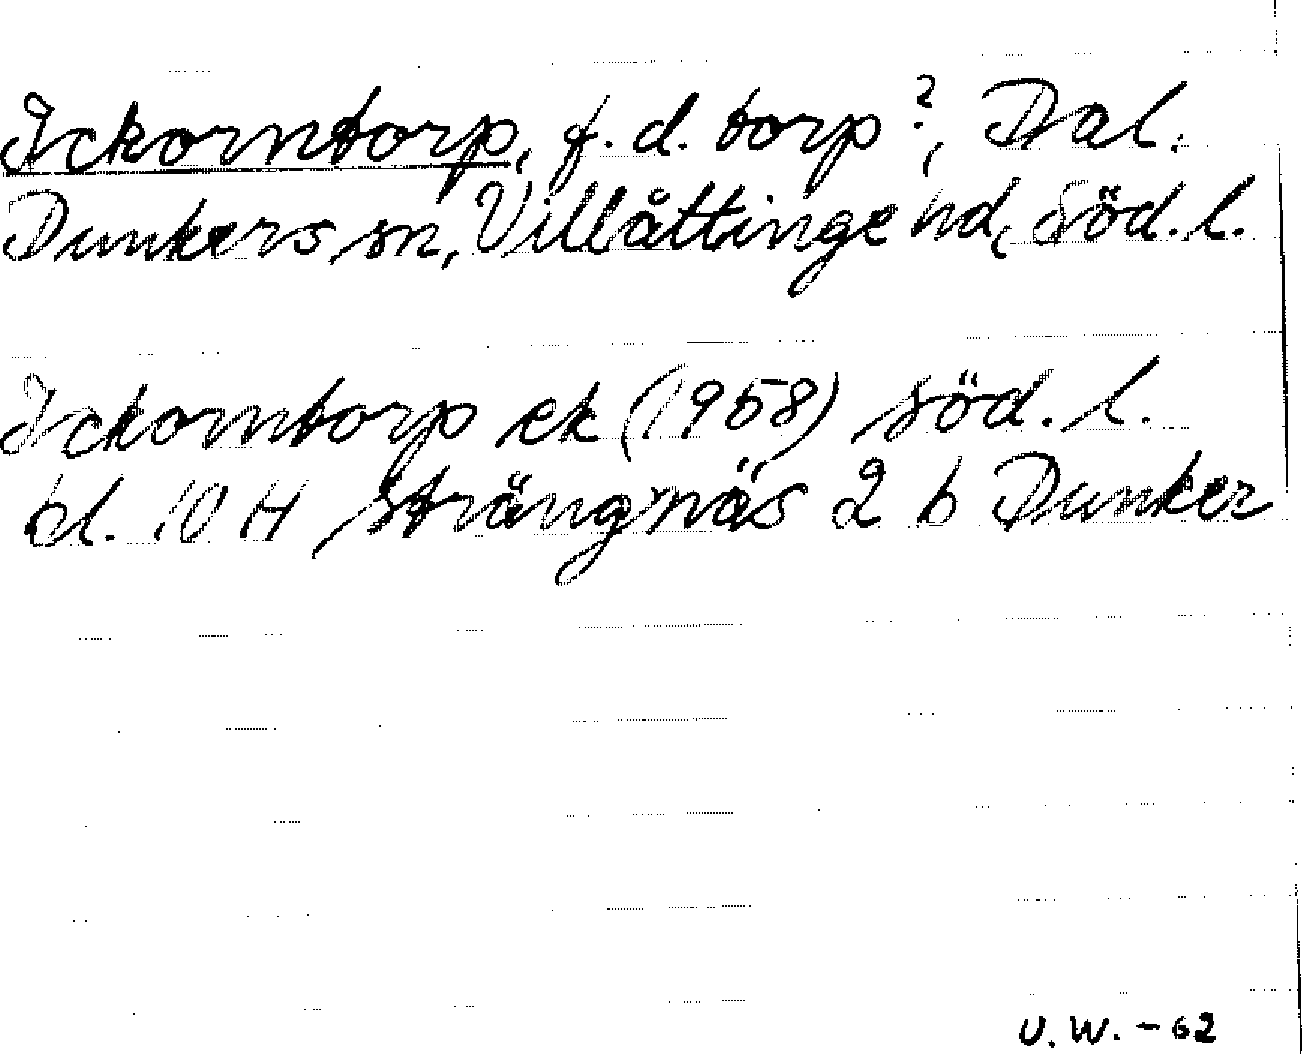 Ickorntorp, f.d. torp?, Dal.
Dunkers sn, Villåttinge hd, Söd. l.
Ickorntorp ek (1958) Söd. l.
bl. 10 H Strängnäs 2 b Dunker
U.W. - 62